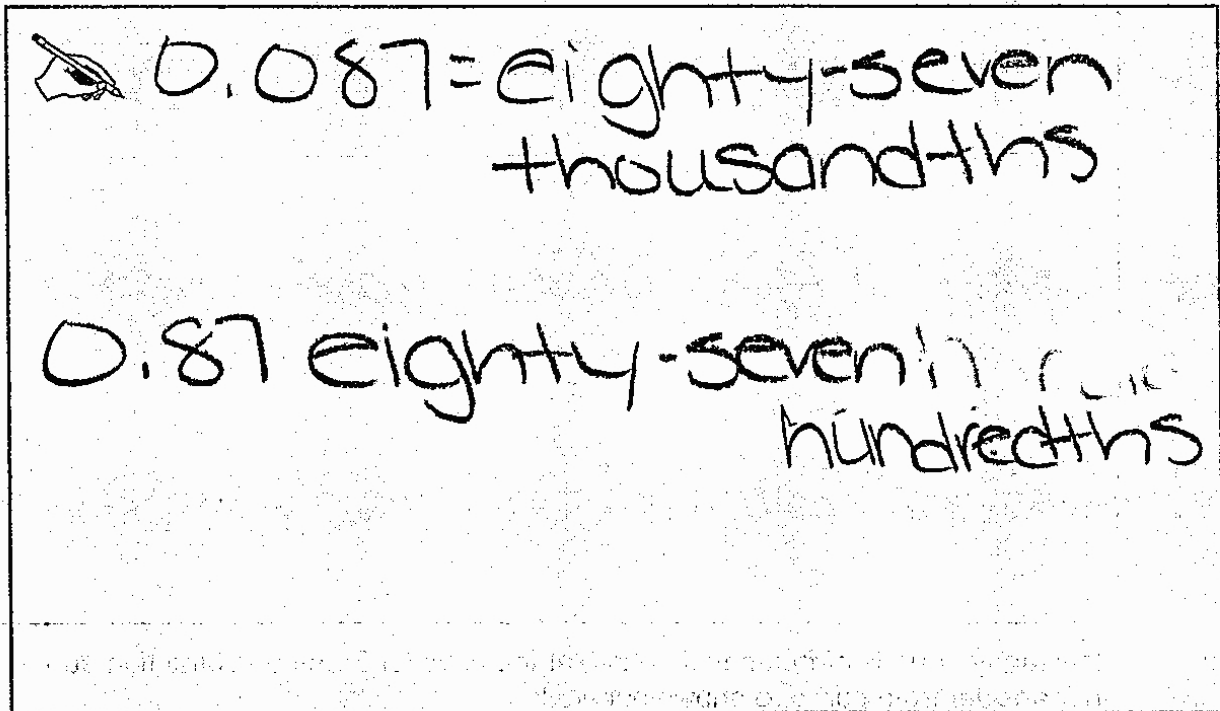 0.087 = eighty-seven
thousandths
0.87 eighty-seven
hundredths